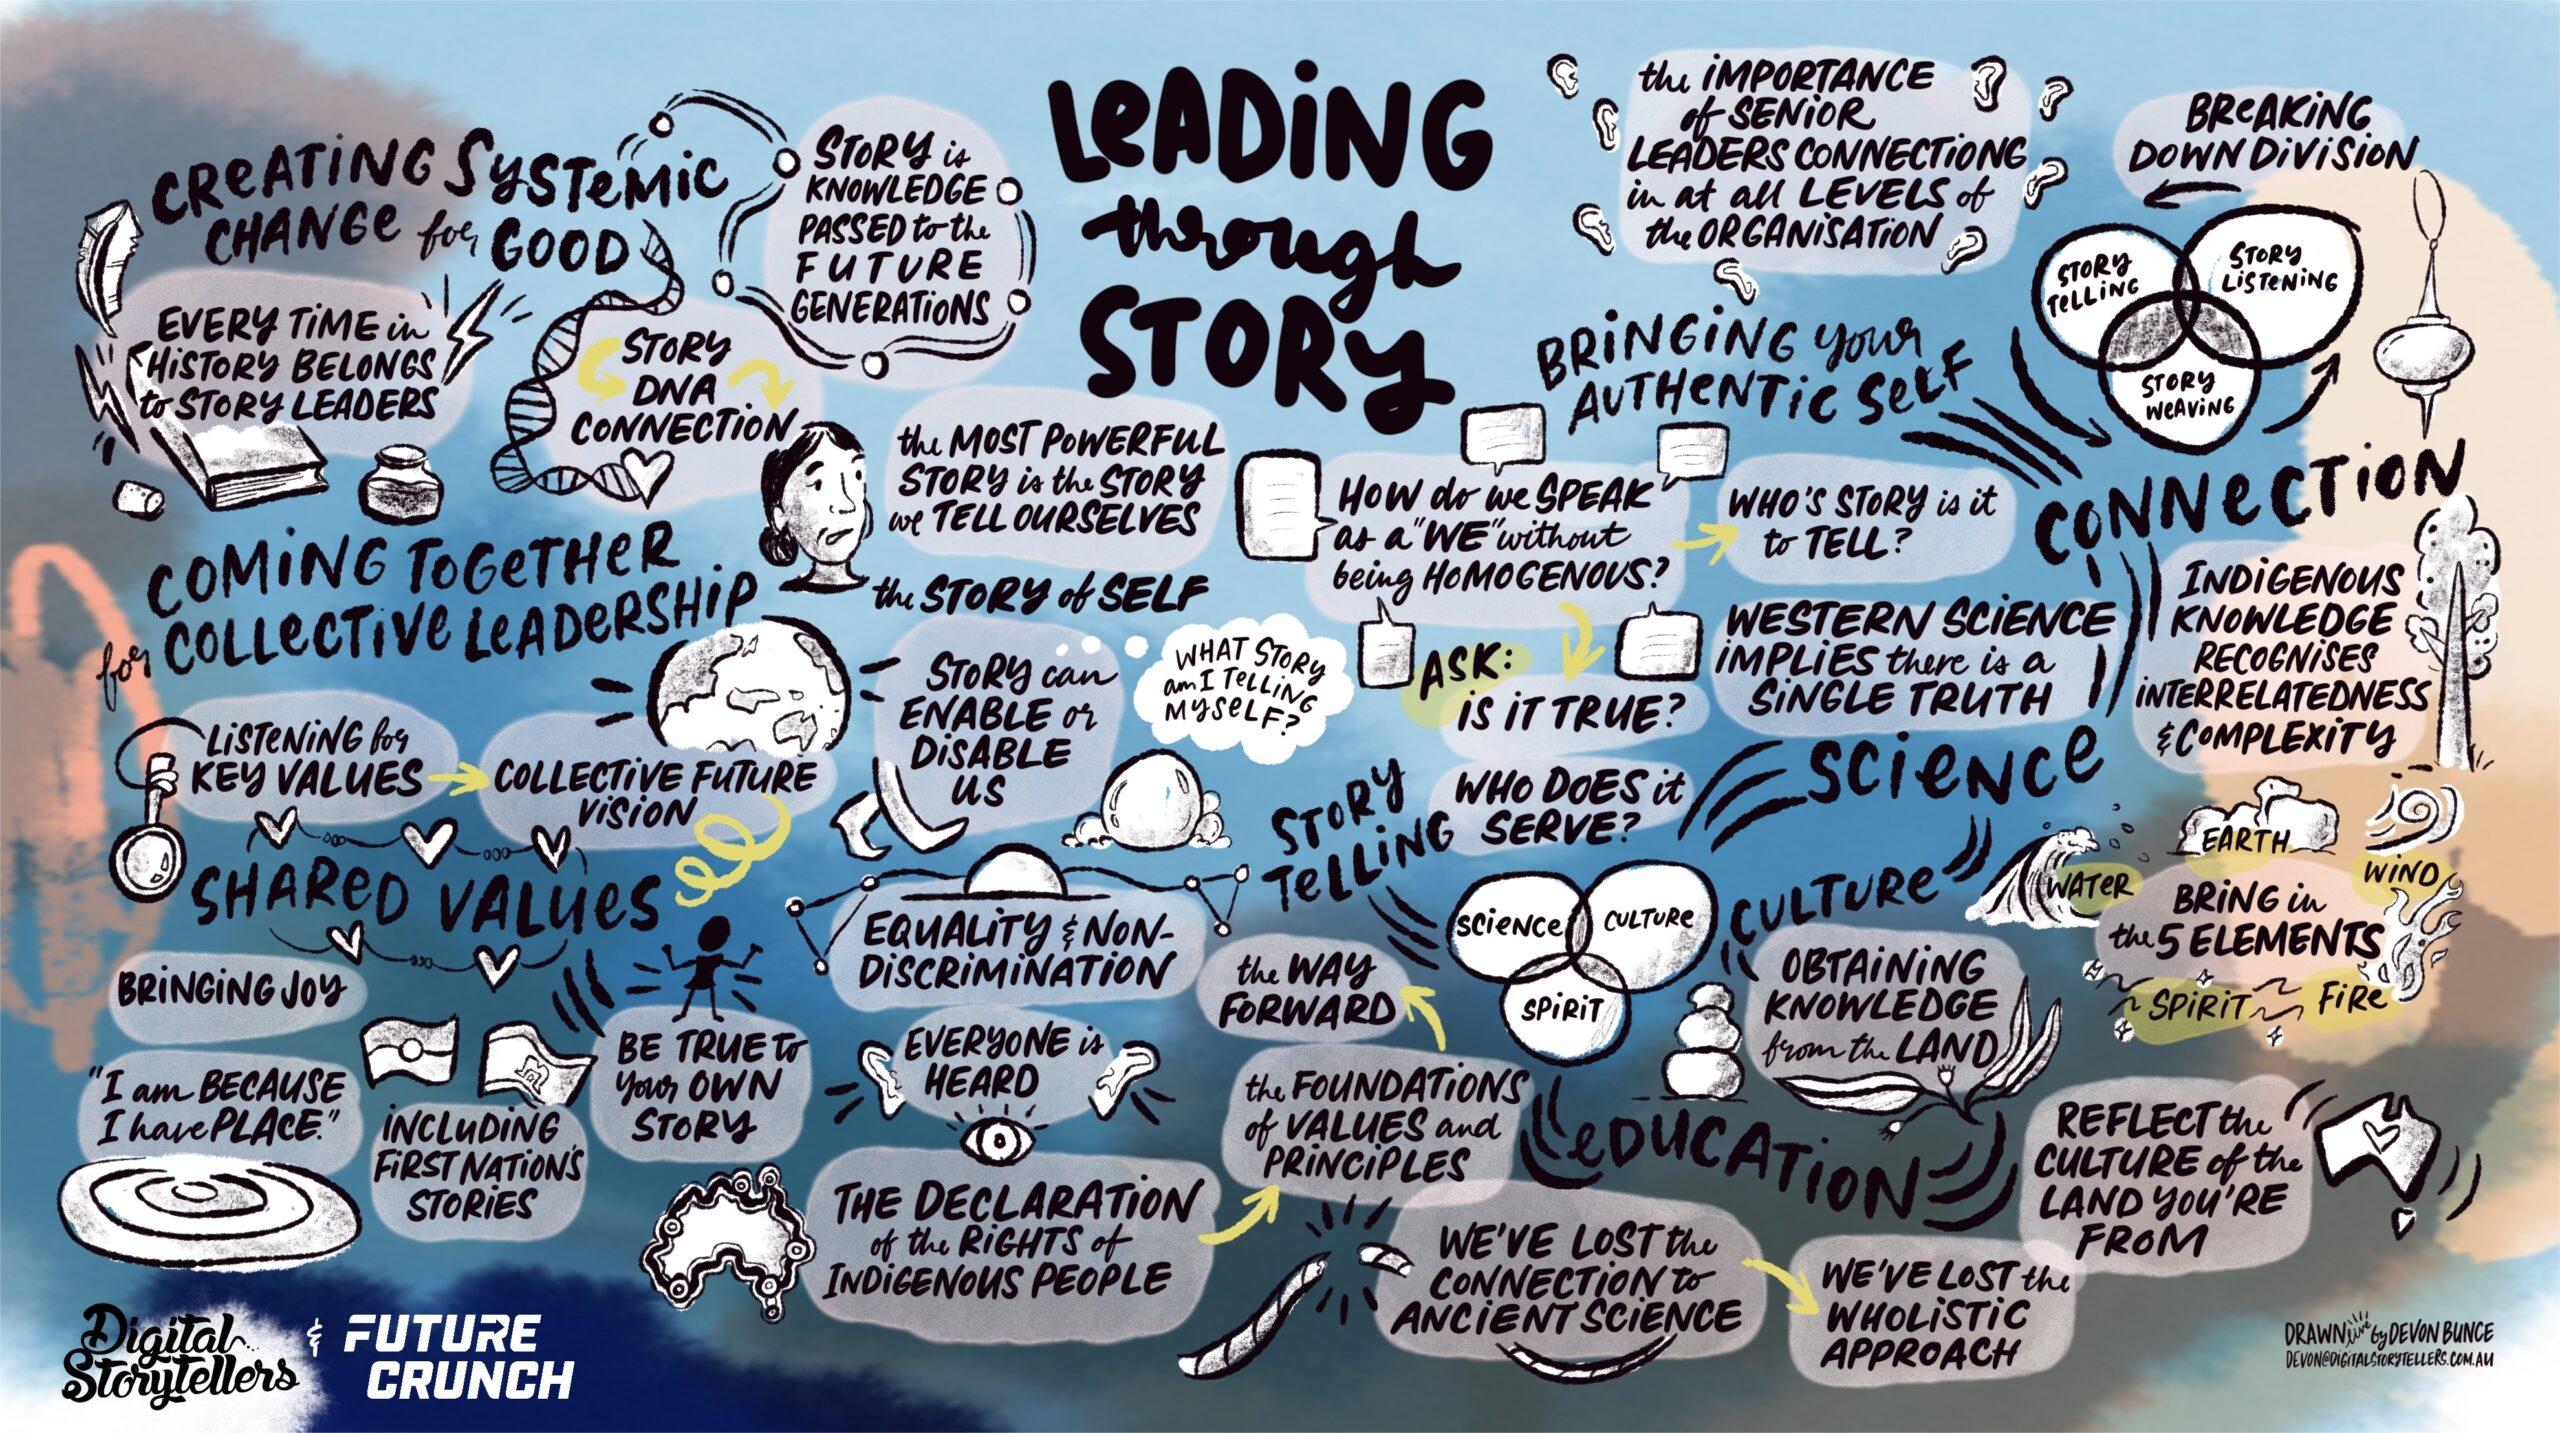 LEADING
through
STORY
CREATING SYSTEMIC
CHANGE for GOOD
EVERY TIME in
HISTORY BELONGS
to STORY LEADERS
STORY
DNA
CONNECTION
STORY is
KNOWLEDGE
PASSED to the
FUTURE
GENERATIONS
the MOST POWERFUL
STORY is the STORY
we TELL OURSELVES
the STORY of SELF
STORY can
ENABLE or
DISABLE
US
WHAT STORY
am I TELLING
MYSELF?
COMING TOGETHER
for COLLECTIVE LEADERSHIP
LISTENING for
KEY VALUES
COLLECTIVE FUTURE
VISION
SHARED VALUES
BRINGING JOY
"I am BECAUSE
I have PLACE."
INCLUDING
FIRST NATION'S
STORIES
BE TRUE to
your OWN
STORY
EQUALITY & NON-
DISCRIMINATION
EVERYONE is
HEARD
THE DECLARATION
of the RIGHTS of
INDIGENOUS PEOPLE
the FOUNDATIONS
of VALUES and
PRINCIPLES
the WAY
FORWARD
the IMPORTANCE
of SENIOR
LEADERS CONNECTIONG
in at all LEVELS of
the ORGANISATION
BRINGING your
AUTHENTIC SELF
HOW do we SPEAK
as a "WE" without
being HOMOGENOUS?
WHO'S STORY is it
to TELL?
ASK:
IS IT TRUE?
WHO DOES it
SERVE?
BREAKING
DOWN DIVISION
STORY
TELLING
STORY
LISTENING
STORY
WEAVING
CONNECTION
WESTERN SCIENCE
IMPLIES there is a
SINGLE TRUTH
INDIGENOUS
KNOWLEDGE
RECOGNISES
INTERRELATEDNESS
& COMPLEXITY
SCIENCE
STORY
TELLING
SCIENCE
CULTURE
SPIRIT
CULTURE
OBTAINING
KNOWLEDGE
from the LAND
EARTH
WATER
WIND
BRING in
the 5 ELEMENTS
SPIRIT
FIRE
EDUCATION
WE'VE LOST the
CONNECTION to
ANCIENT SCIENCE
WE'VE LOST the
WHOLISTIC
APPROACH
REFLECT the
CULTURE of the
LAND YOU'RE
FROM
Digital
Storytellers
& FUTURE
CRUNCH
DRAWN live by DEVON BUNCE
DEVON@DIGITALSTORYTELLERS.COM.AU